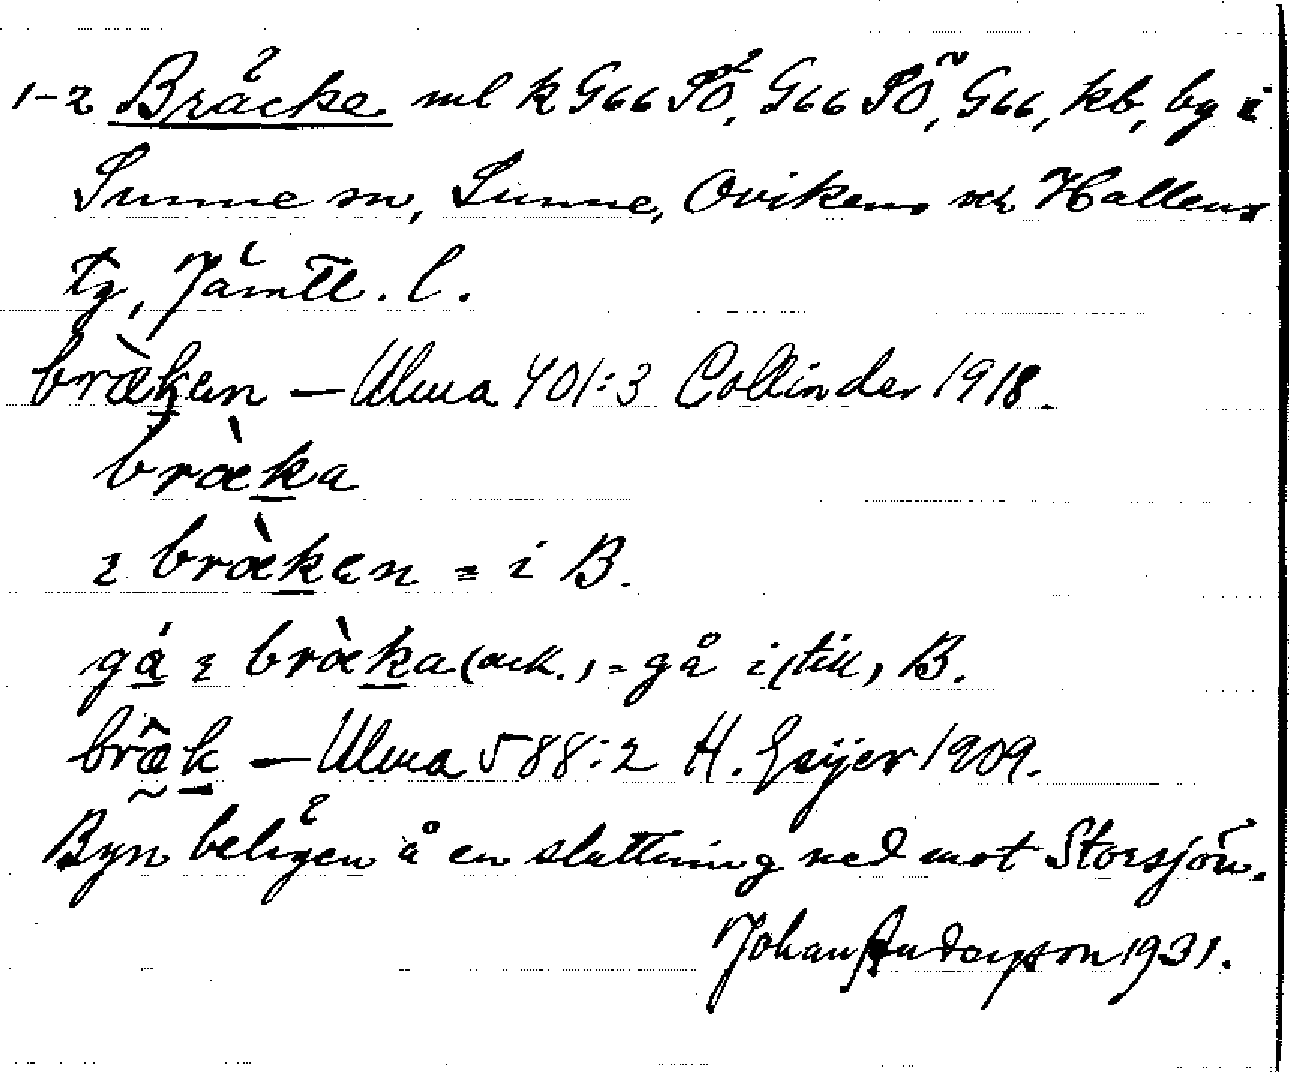 1-2 Bräcke ml k G66 SÖ, G66 SÖ, G66, kb, by i
Sunne sn, Sunne, Ovikens och Hallens
tg, Jämtl. l.
bræ̀ken — Ulma 401:3 Collinder 1918.
bræ̀ka
ɩ bræ̀ken = i B.
gá ɩ bræ̀ka (ack.) = gå i (till) B.
bræ̂k — Ulma 588:2 H. Geijer 1909.
Byn belägen å en sluttning ned mot Storsjön.
Johan Anderson 1931.